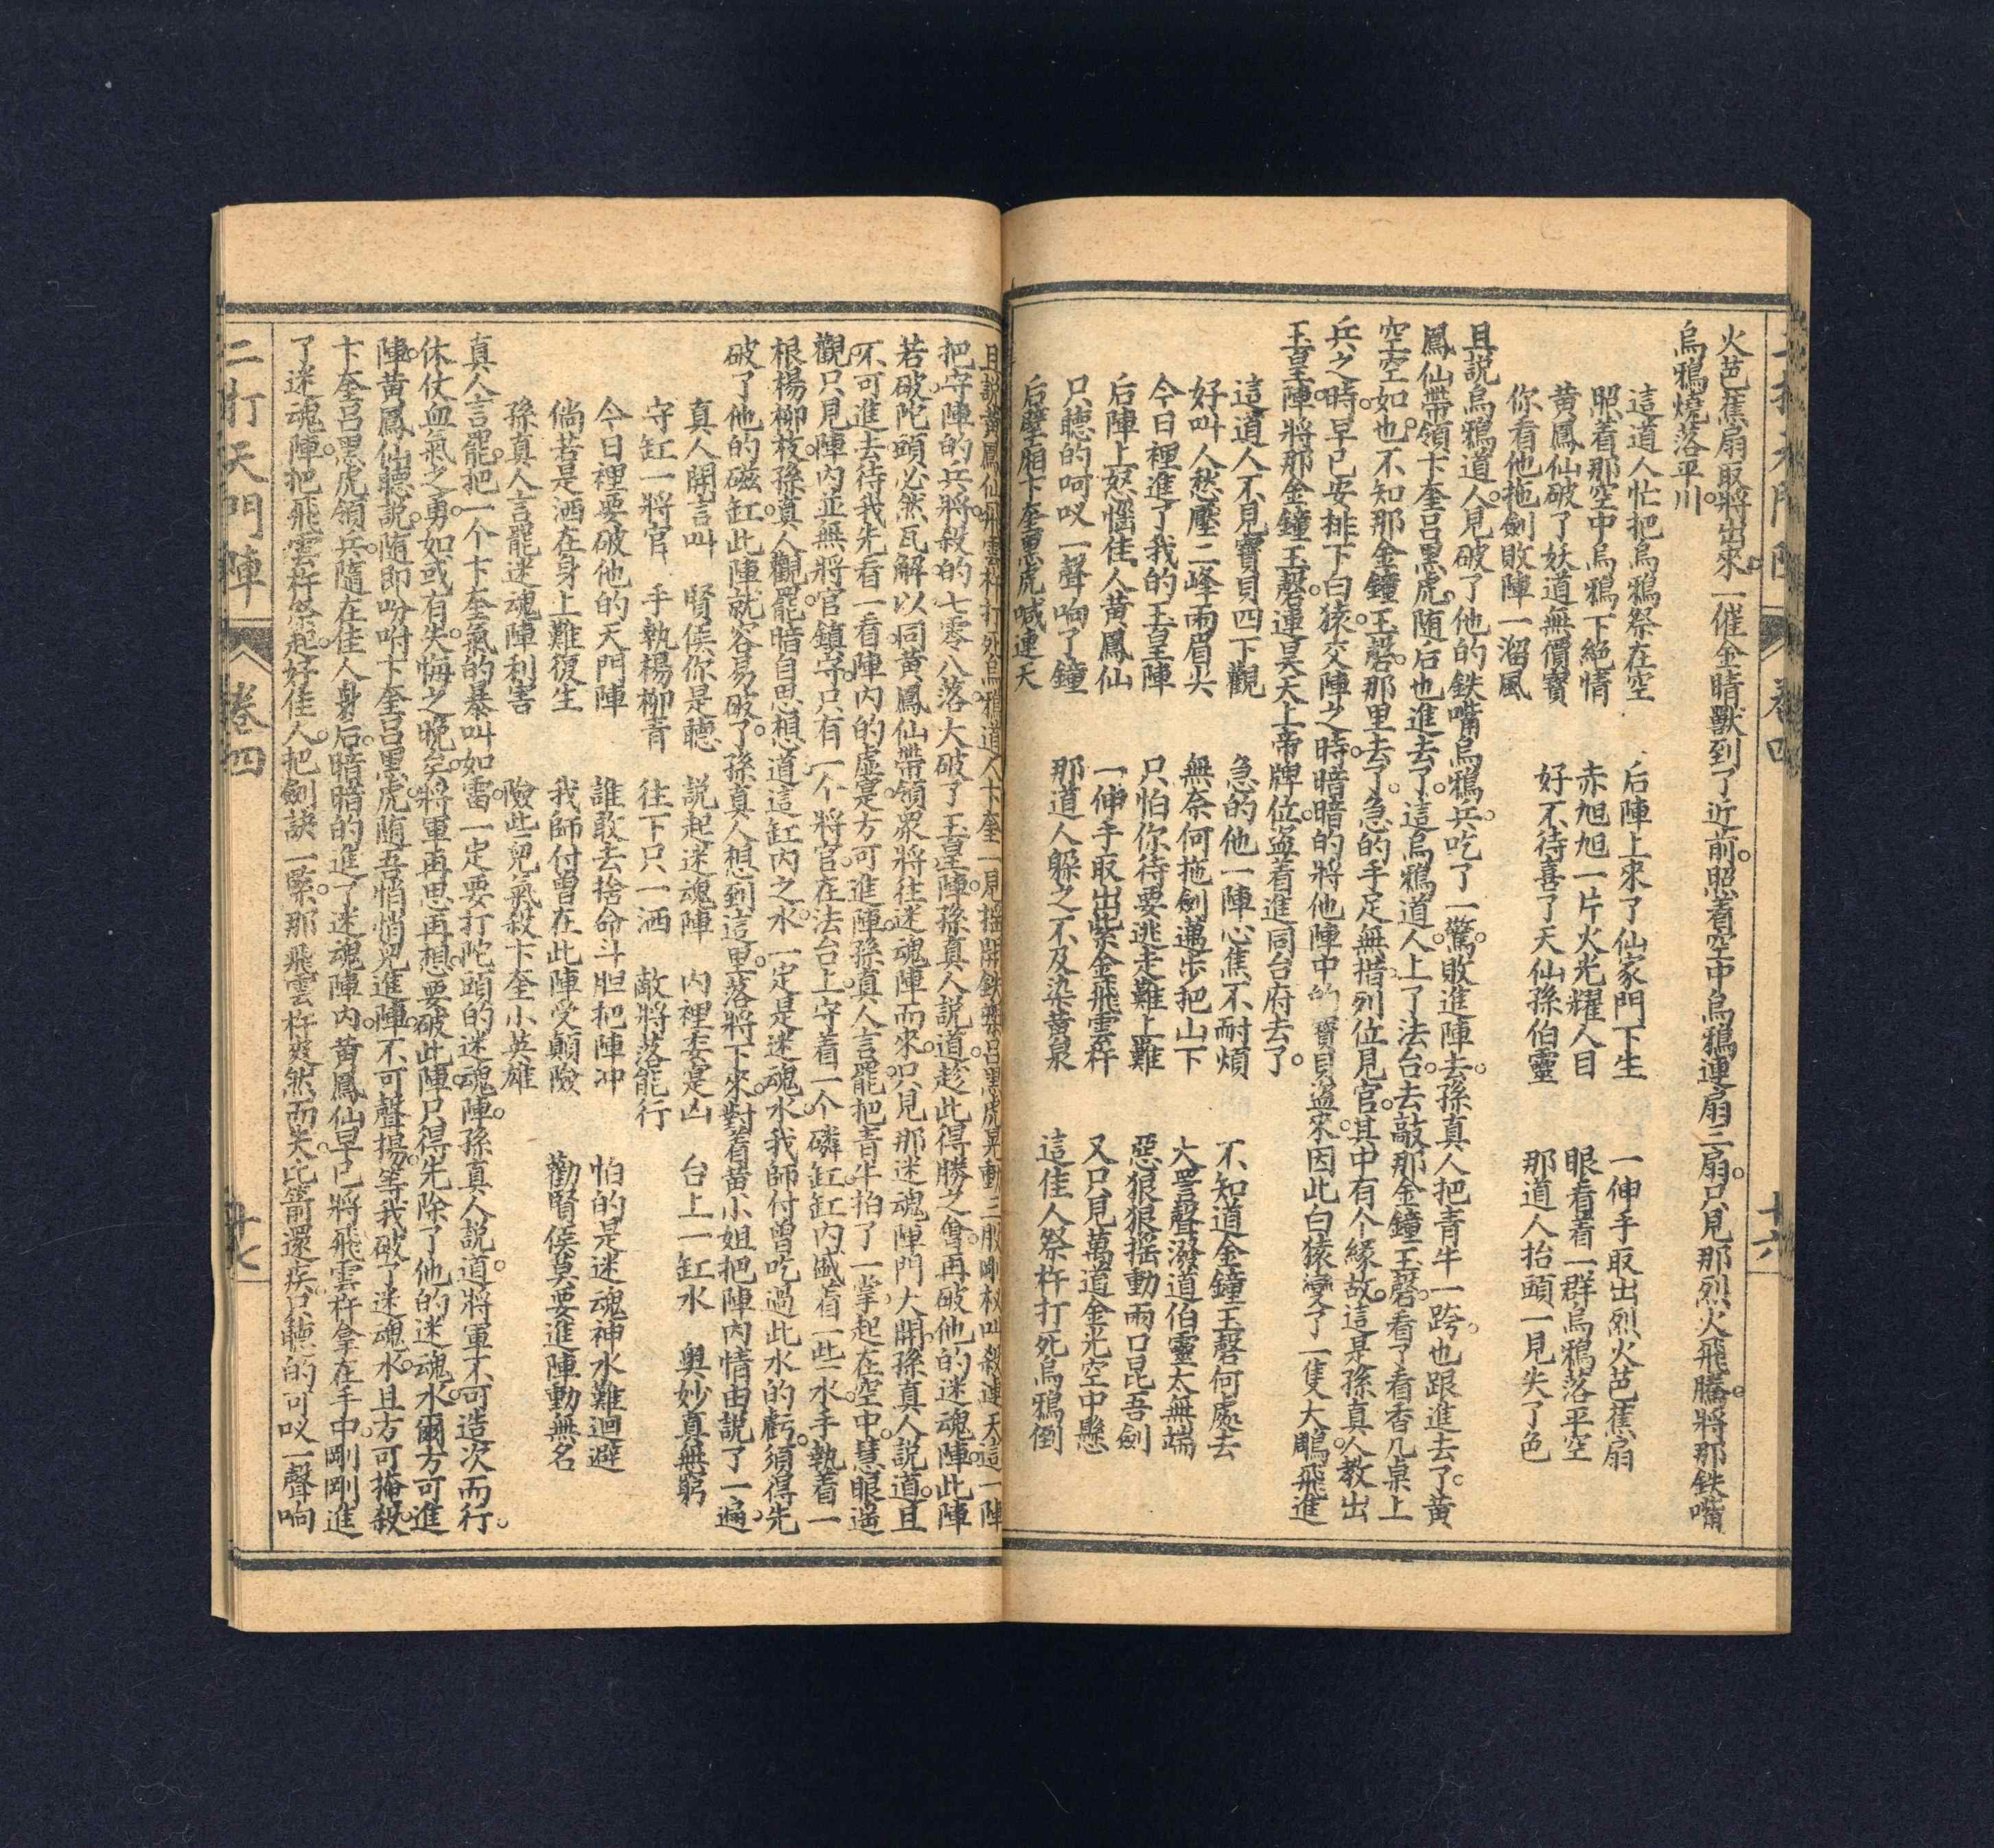 火芭蕉扇取將出來一催金睛獸到了近前照着空中烏鴉連扇三扇只見那烈火飛騰將那鉄嘴
烏鴉燒落平川
這道人忙把烏鴉祭在空 后陣上來了仙家門下生 一伸手取出烈火芭蕉扇
照着那空中烏鴉下絕情 赤旭旭一片火光耀人目 眼看着一群烏鴉落平空
黄鳳仙破了妖道無價寳 好不待喜了天仙孫伯靈 那道人抬頭一見失了色
你看他拖劍敗陣一溜風
且説烏鴉道人見破了他的鉄嘴烏鴉兵吃了一驚敗進陣去孫真人把青牛一跨也跟進去了黄
鳳仙帶領卞奎吕黑虎随后也進去了這烏鴉道人上了法台去敲那金鐘玉磬看了看香几桌上
空空如也不知那金鐘玉磬那里去了急的手足無措列位見官其中有个緣故這是孫真人教出
兵之時早已安排下白猿交陣之時暗暗的將他陣中的寳貝盗來因此白猿變了一隻大鵰飛進
玉皇陣將那金鐘玉磬連昊天上帝牌位盗着進同台府去了
這道人不見寳貝四下觀 急的他一陣心焦不耐煩 不知道金鐘玉磬何處去
好叫人愁壓二峰兩眉尖 無奈何拖劍邁步把山下 大罵聲潑道伯靈太無端
今日裡進了我的玉皇陣 只怕你待要逃走難上難 惡狠狠摇動兩口昆吾劍
后陣上怒惱佳人黄鳳仙 一伸手取出紫金飛雲杵 又只見萬道金光空中懸
只聽的呵叹一聲响了鐘 那道人躲之不及染黄泉 這佳人祭杵打死烏鴉倒
后壁廂卞奎黑虎喊連天
二打天門陣 卷四 十六
且説黄鳳仙飛雲杵打死烏鴉道人卞奎一見摇開鉄槊吕黑虎晃動三股剛杈叫殺連天這一陣
把守陣的兵將殺的七零八落大破了玉皇陣孫真人説道趁此得勝之隻再破他的迷魂陣此陣
若破陀頭必然瓦解以同黄鳳仙帶領衆將往迷魂陣而來只見那迷魂陣門大開孫真人説道且
不可進去待我先看一看陣内的虚寔方可進陣孫真人言罷把青牛拍了一掌起在空中慧眼遥
觀只見陣内並無將官鎮守只有一个將官在法台上守着一个磷缸缸内盛着一些水手執着一
根楊柳枝孫真人觀罷暗自思想道這缸内之水一定是迷魂水我師付曾吃過此水的虧須得先
破了他的磁缸此陣就容易破了孫真人想到這里落將下來對着黄小姐把陣内情由説了一遍
真人開言叫 賢侯你是聽 説起迷魂陣 内裡委寔凶 台上一缸水 奥妙真無窮
守缸一將官 手執楊柳青 往下只一洒 敵將落能行
今日裡要破他的天門陣 誰敢去捨命斗胆把陣冲 怕的是迷魂神水難迴避
倘若是洒在身上難復生 我師付曾在此陣受顛險 勸賢侯莫要進陣動無名
孫真人言罷迷魂陣利害 險些兒氣殺卞奎小英雄
真人言罷把一个卞奎氣的暴叫如雷一定要打陀頭的迷魂陣孫真人説道將軍不可造次而行
休仗血氣之勇如或有失悔之晚矣將軍再思再想要破此陣只得先除了他的迷魂水爾方可進
陣黄鳳仙聽説随即吩咐卞奎吕黑虎随吾悄悄兒進陣不可聲揚等我破了迷魂水且方可掩殺
卞奎吕黑虎領兵隨在佳人身后暗暗的進了迷魂陣内黄鳳仙早已將飛雲杵拿在手中剛剛進
了迷魂陣把飛雲杵祭起好佳人把劍訣一㨿那飛雲杵兹然而失比箭還疾只聽的可叹一聲响
二打天門陣 卷四 十七